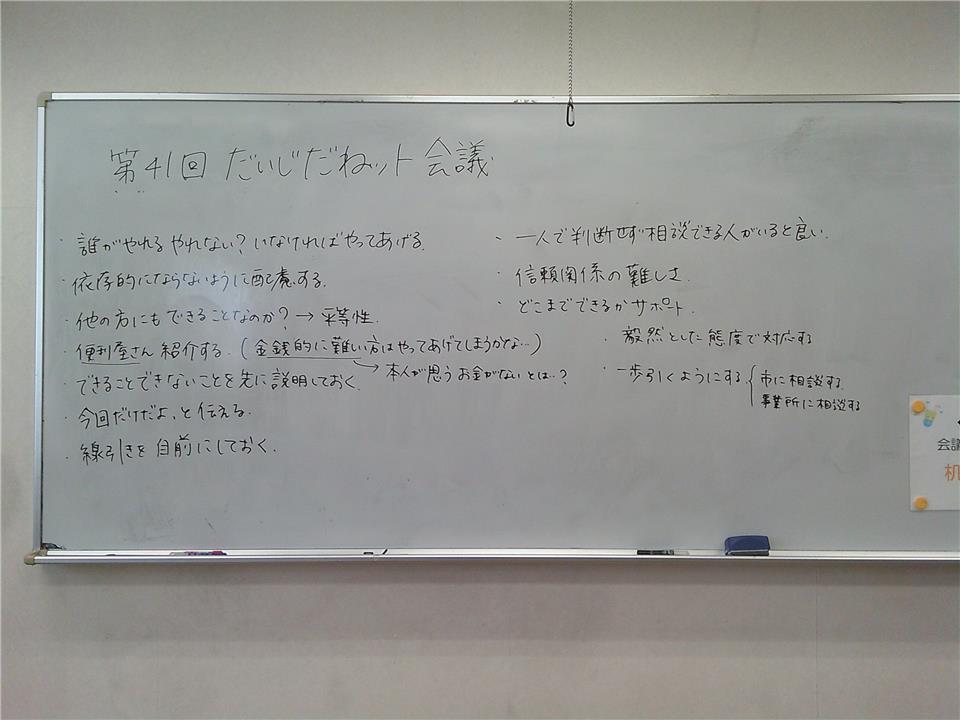 第41回 だいじだねット会議
・誰がやれる やれない？ いなければやってあげる。
・依存的にならないように配慮する。
・他の方にもできることなのか？→平等性。
・便利屋さん紹介する。（金銭的に難しい方はやってあげてしまうかな…）
→本人が思うお金がないとは…？
・できることできないことを先に説明しておく。
・今回だけだよ、と伝える。
・線引きを自前にしておく。
・一人で判断せず相談できる人がいると良い。
信頼関係の難しさ。
・どこまでできるかサポート。
・毅然とした態度で対応する
・一歩引くようにする｛市に相談する。
事業所に相談する
会議
机